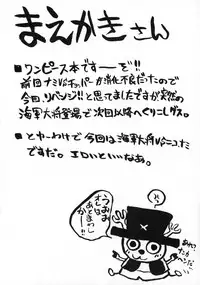 まえがきさん
■ワンピース本ですーーぞ!!
前回ナミVSチョッパーが消化不良だたので
今回、リベンジ!!と思ってましたが突然の
海軍大将登場で次回以降へくりこしデス。
■とゆーわけで今回は海軍大将VSニコ.たん
ですだ。エロいといいなあ。
うおお
オレは
あとまわし
かーー